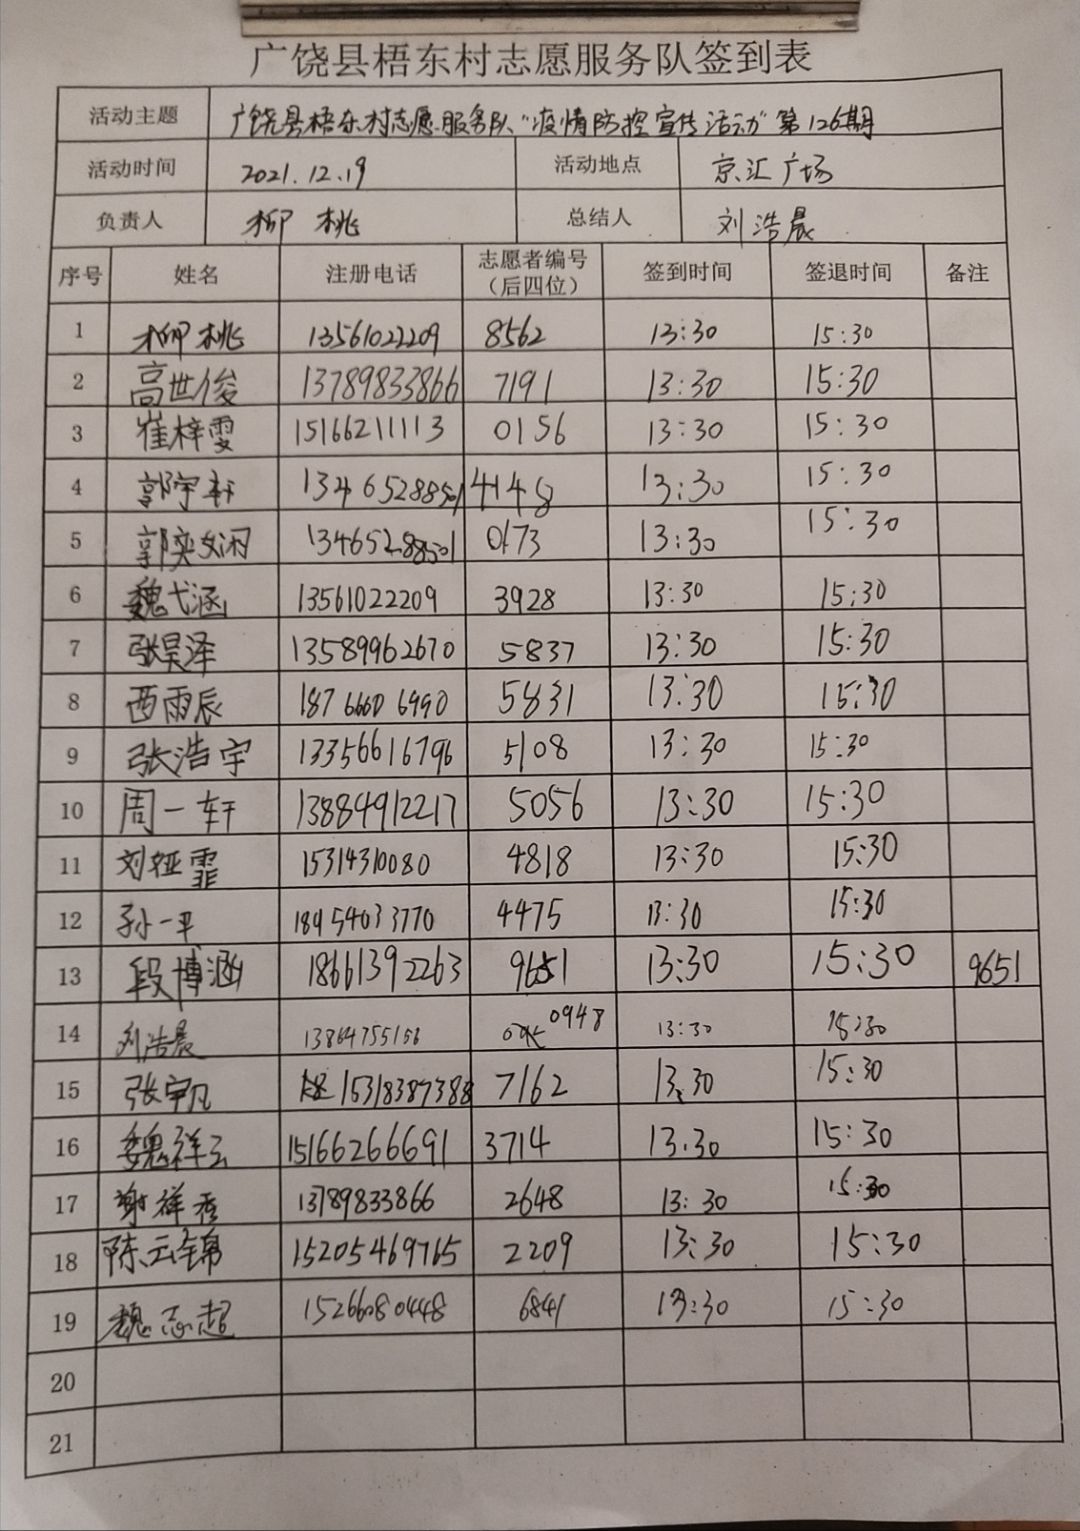 广饶县梧东村志愿服务队签到表
活动主题 广饶县梧东村志愿服务队“疫情防控宣传活动”第126期
活动时间 2021.12.19 活动地点 京汇广场
负责人 柳桃 总结人 刘浩晨
序号 姓名 注册电话 志愿者编号（后四位） 签到时间 签退时间 备注
1 柳桃 13561022209 8562 13:30 15:30
2 高世俊 13789833866 7191 13:30 15:30
3 崔梓雯 15166211113 0156 13:30 15:30
4 郭宇轩 13465288501 4148 13:30 15:30
5 郭奕汝闲 13465288501 0173 13:30 15:30
6 魏弋涵 13561022209 3928 13:30 15:30
7 张昊泽 13589962670 5837 13:30 15:30
8 西雨辰 18766606990 5831 13:30 15:30
9 张浩宇 13356616796 5108 13:30 15:30
10 周一轩 13884912217 5056 13:30 15:30
11 刘娅霏 15314310080 4818 13:30 15:30
12 孙一平 18954033770 4475 13:30 15:30
13 段博涵 18661392263 9651 13:30 15:30 9651
14 刘浩晨 13864755156 0948 13:30 15:30
15 张宇凡 15318387388 7162 13:30 15:30
16 魏祥云 15166266691 3714 13:30 15:30
17 谢祥秀 13789833866 2648 13:30 15:30
18 陈云锦 15205469765 2209 13:30 15:30
19 魏志超 15266080448 6841 13:30 15:30
20
21